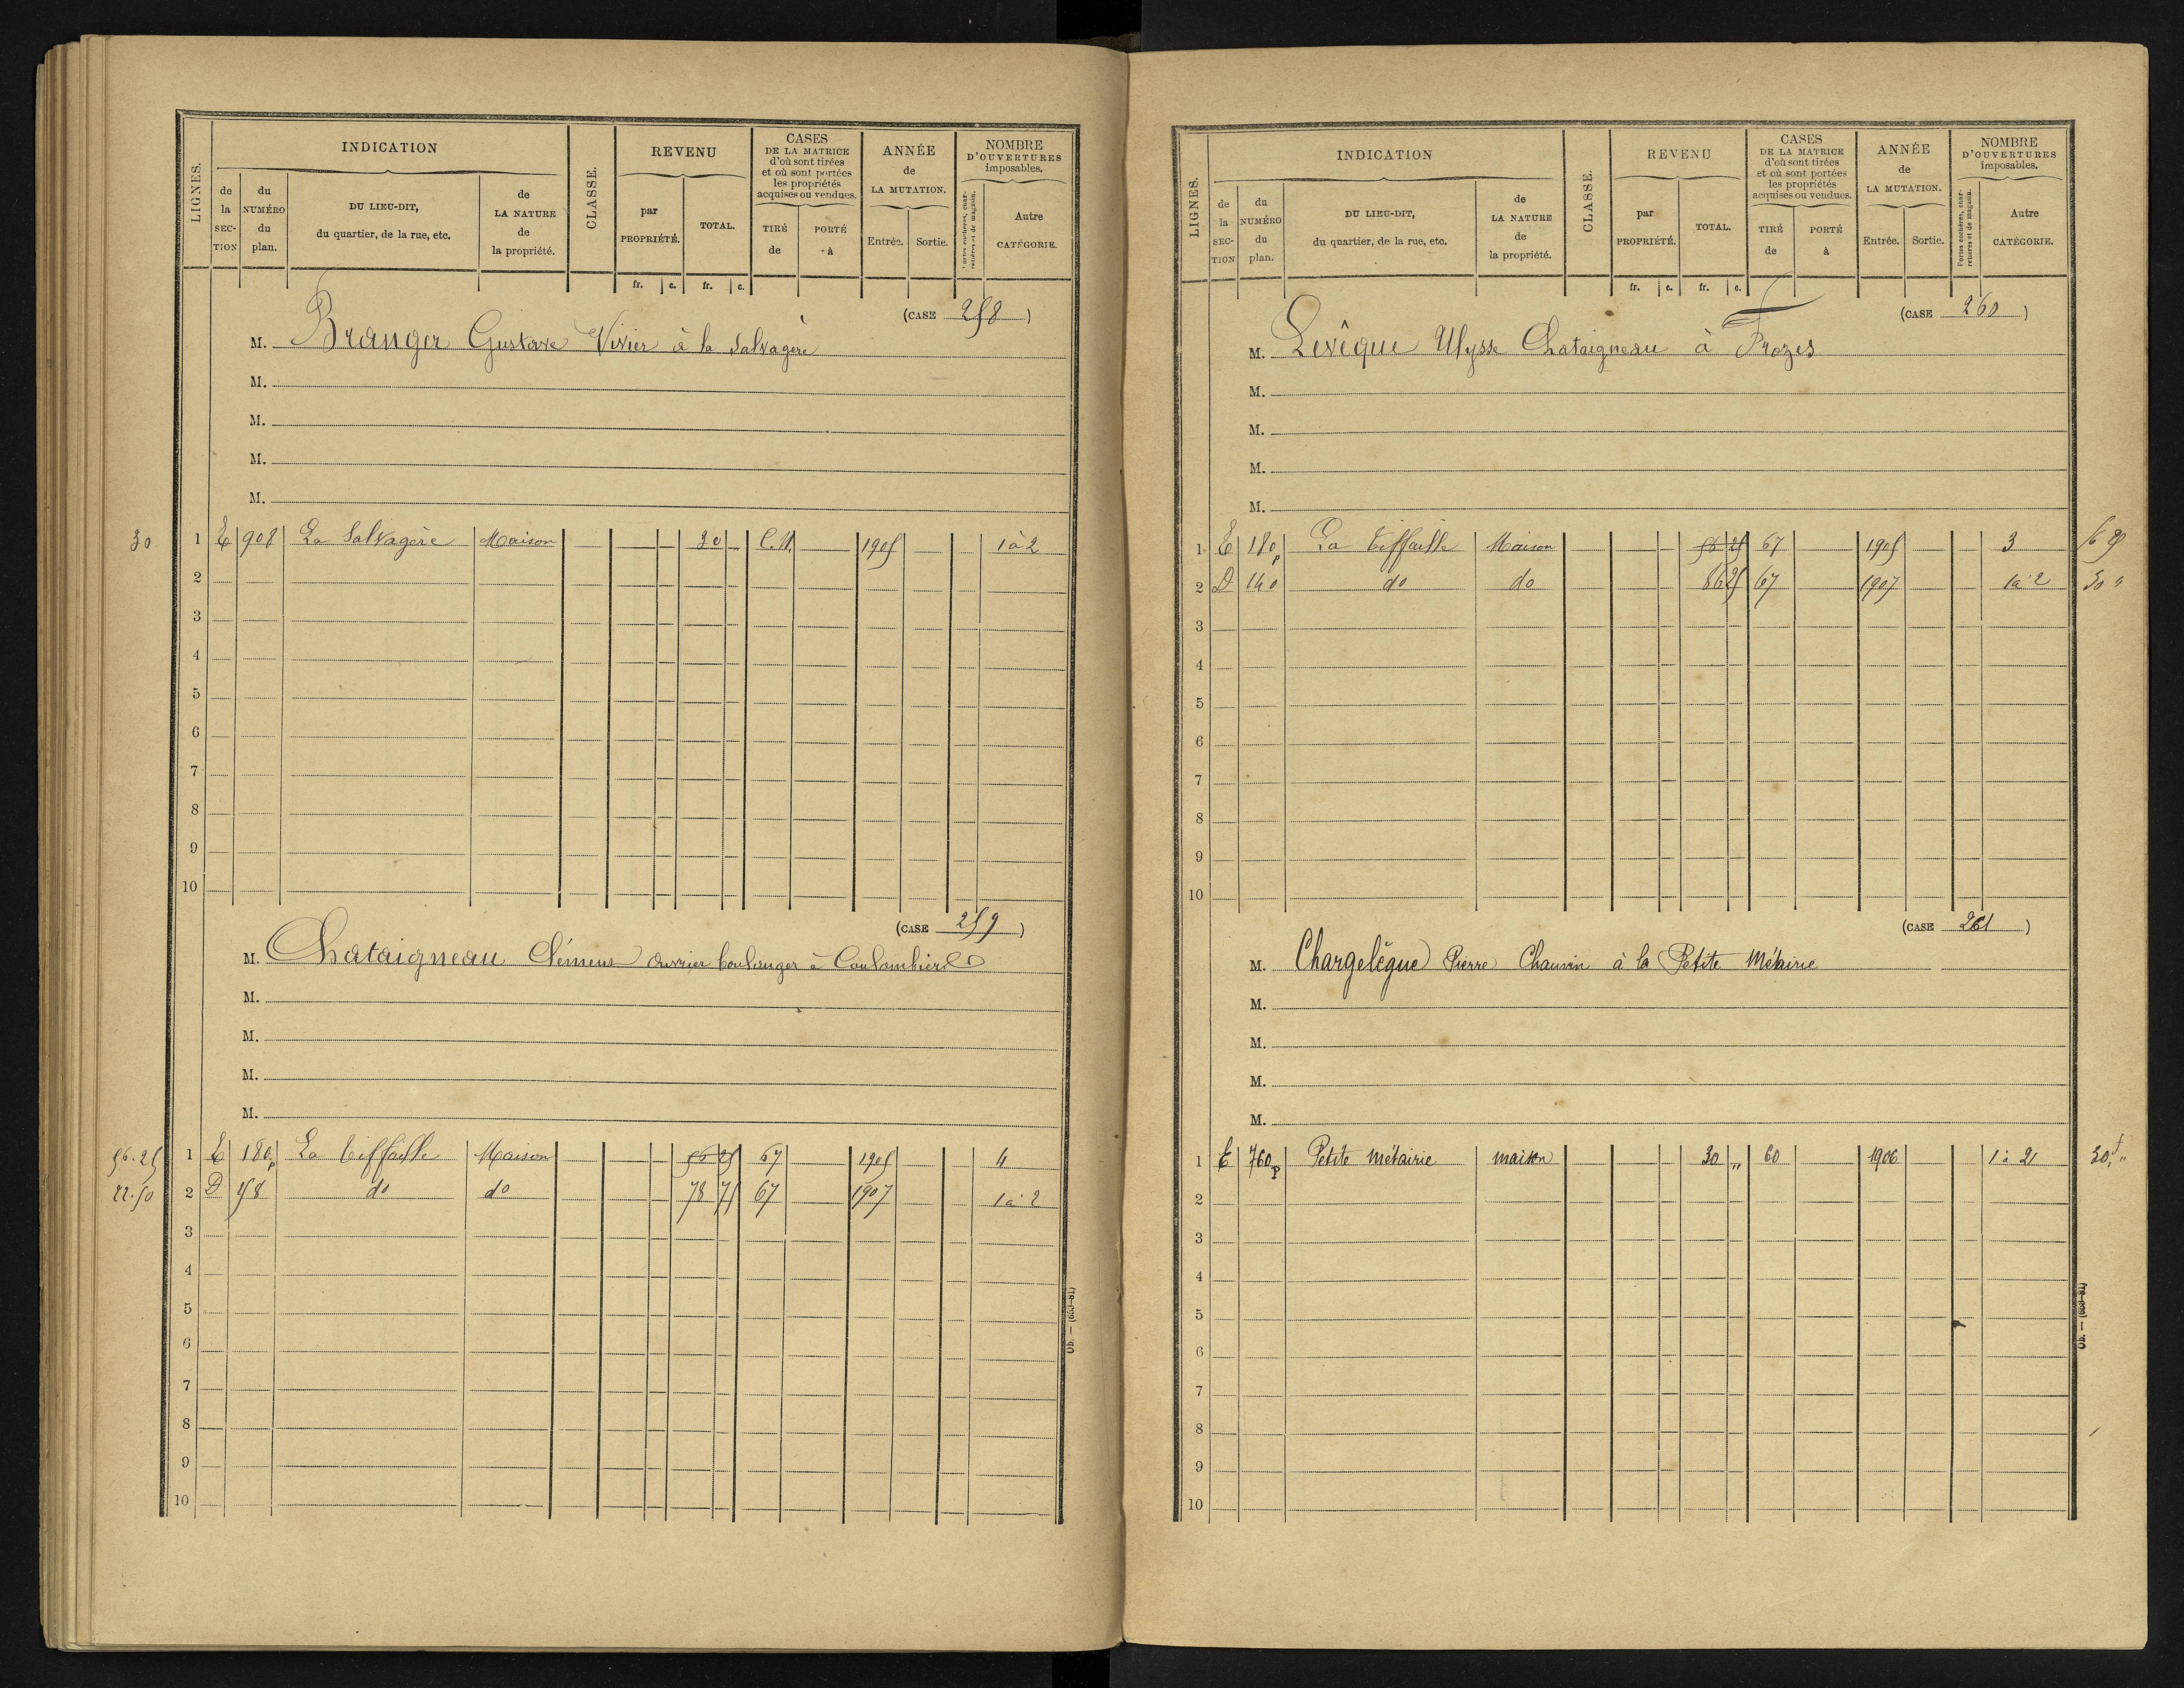 LIGNES.
INDICATION
de la SECTION
du NUMÉRO du plan.
DU LIEU-DIT, du quartier, de la rue, etc.
de LA NATURE de la propriété.
CLASSE.
REVENU
par PROPRIÉTÉ.
TOTAL.
CASES DE LA MATRICE d'où sont tirées et où sont portées les propriétés acquises ou vendues.
TIRÉ de
PORTÉ à
ANNÉE de LA MUTATION.
Entrée.
Sortie.
NOMBRE D'OUVERTURES imposables.
Portes cochères, charretières et de magasin.
Autre CATÉGORIE.
fr. c. fr. c.
(CASE 258)
M. Branger Gustave Vivier à la Salvagère
M.
M.
M.
M.
30 1 E 908 La Salvagère Maison 30 C.N. 1905 1 à 2
2
3
4
5
6
7
8
9
10
(CASE 259)
M. Chataigneau Clémens ouvrier boulanger à Coulombiers
M.
M.
M.
M.
56.25 1 E 180p La Tiffaille Maison 56 25 67 1905 4
22.50 2 D 58 do do 78 75 67 1907 1 à 2
3
4
5
6
7
8
9
10
Ob. — (659-81)
LIGNES.
INDICATION
de la SECTION
du NUMÉRO du plan.
DU LIEU-DIT, du quartier, de la rue, etc.
de LA NATURE de la propriété.
CLASSE.
REVENU
par PROPRIÉTÉ.
TOTAL.
CASES DE LA MATRICE d'où sont tirées et où sont portées les propriétés acquises ou vendues.
TIRÉ de
PORTÉ à
ANNÉE de LA MUTATION.
Entrée.
Sortie.
NOMBRE D'OUVERTURES imposables.
Portes cochères, charretières et de magasin.
Autre CATÉGORIE.
fr. c. fr. c.
(CASE 260)
M. Levêque Ulysse Chataigneau à Frozes
M.
M.
M.
M.
1 E 180p La Tiffaille Maison 56 25 67 1905 3 56 25
2 D 140 do do 86 25 67 1907 1 à 2 30 "
3
4
5
6
7
8
9
10
(CASE 261)
M. Chargelègue Pierre Chauvin à la Petite Métairie
M.
M.
M.
M.
1 E 760p Petite Métairie maison 30 " 60 1906 1 à 2 30f "
2
3
4
5
6
7
8
9
10
Ob. — (659-81)